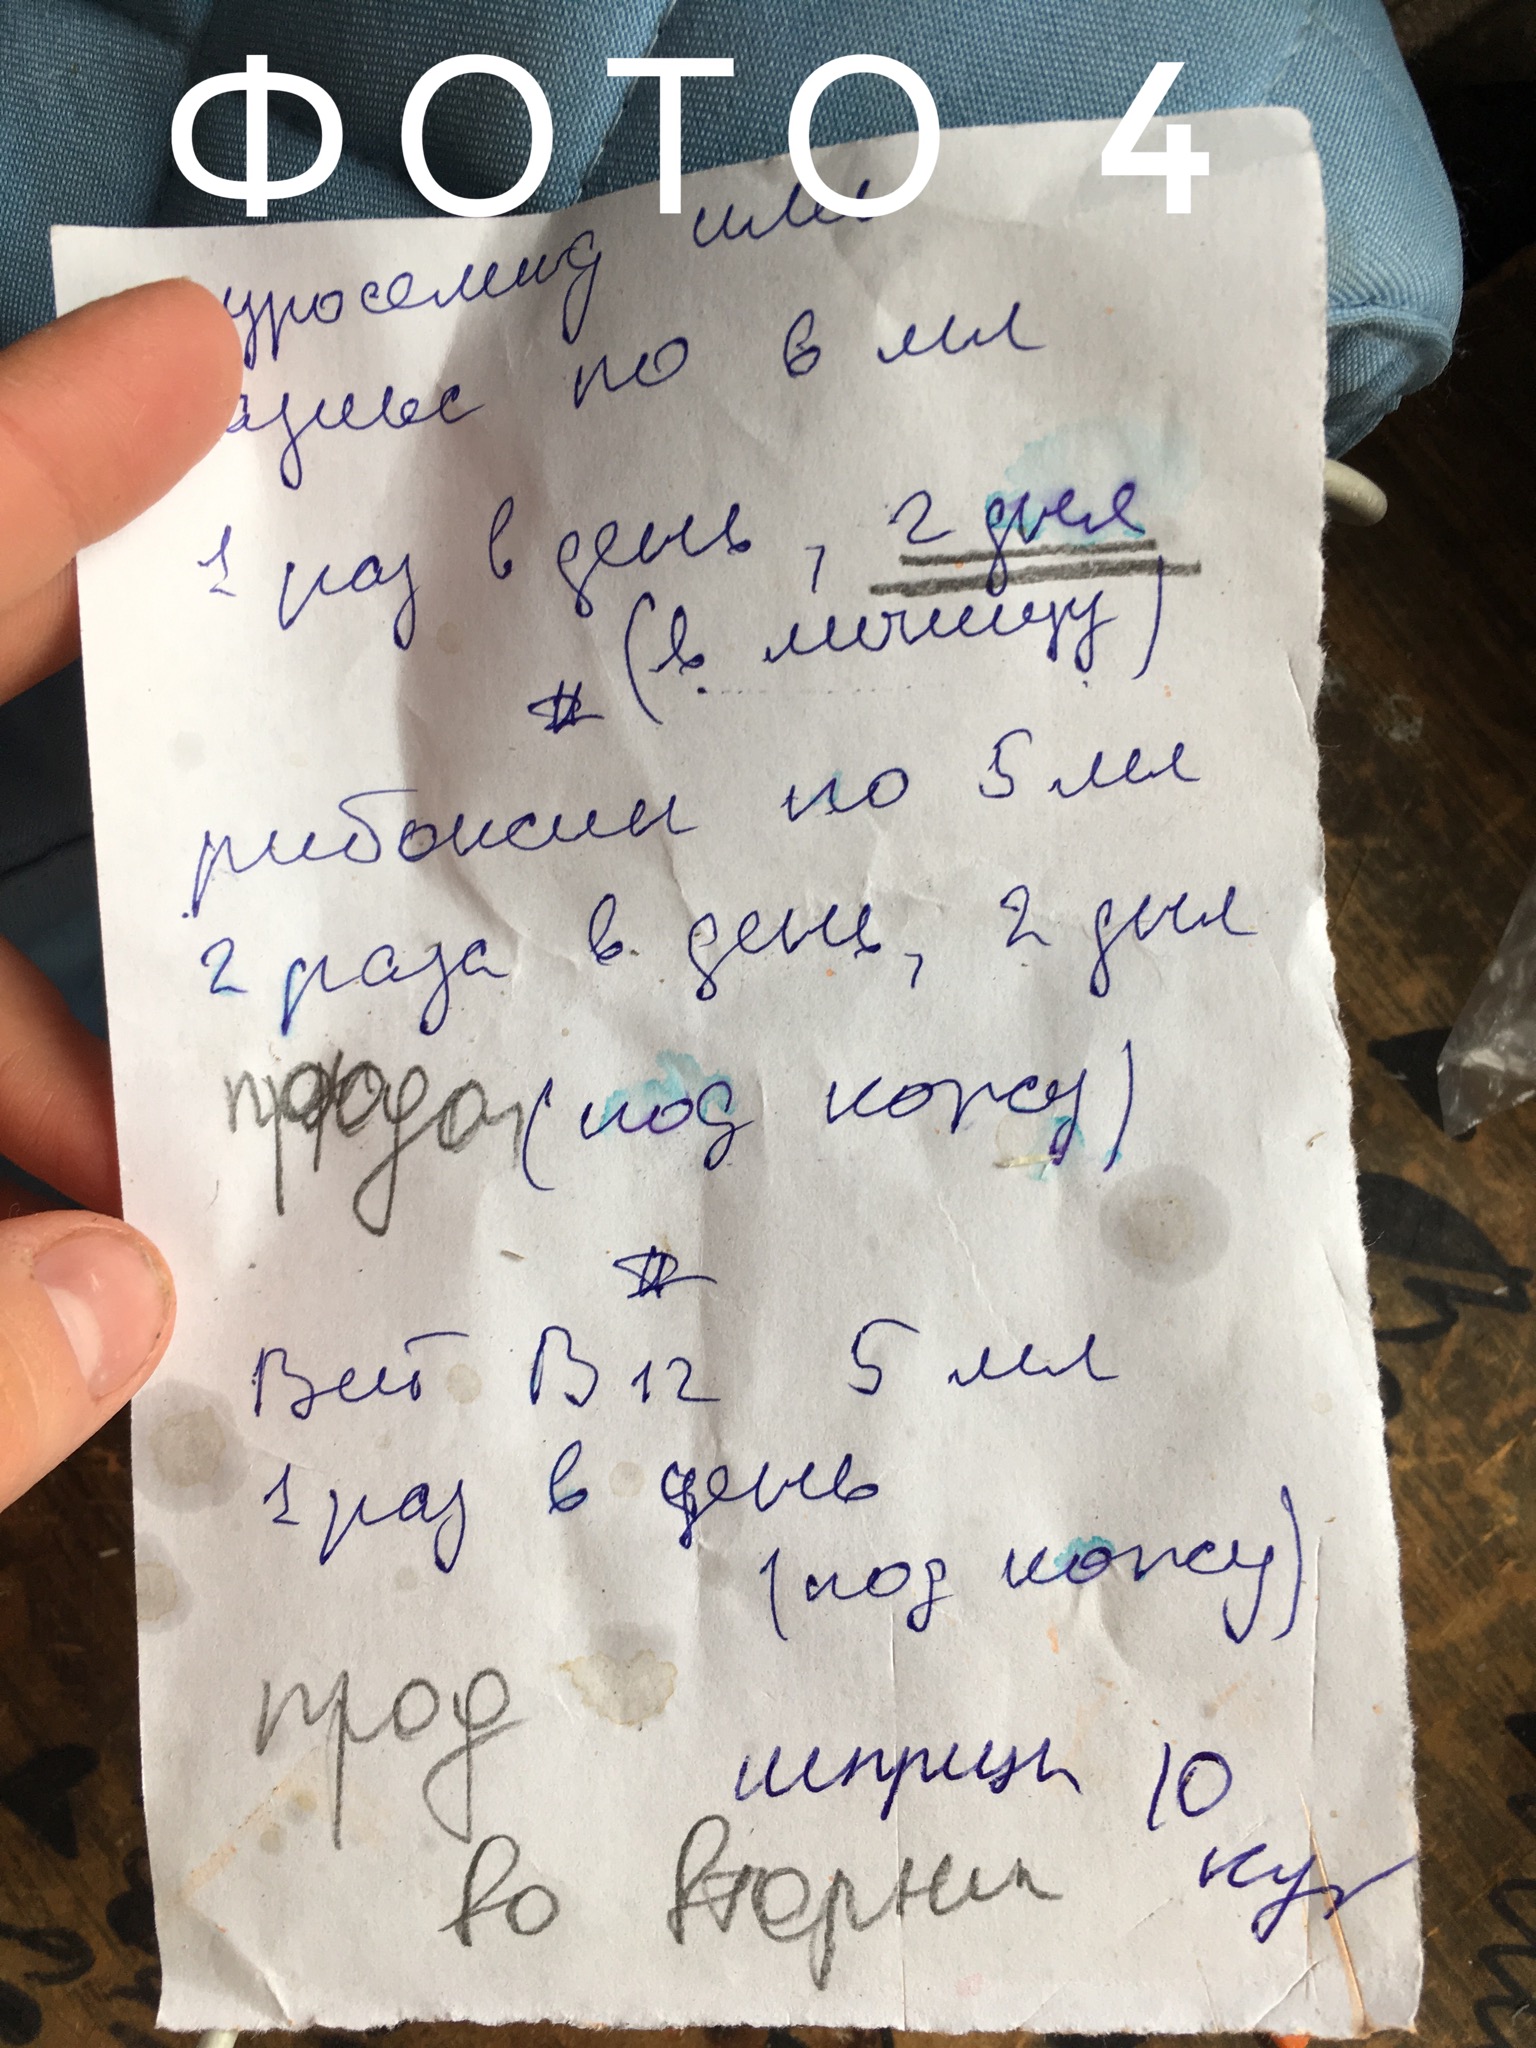 ФОТО 4
уросемид или
азикс по 6 мл
1 раз в день, 2 дня
(в мышцу)
рибоксин по 5 мл
2 раза в день, 2 дня
(под кожу)
Вит В12 5 мл
1 раз в день
(под кожу)
прод
шприцы 10
во вторник
куб